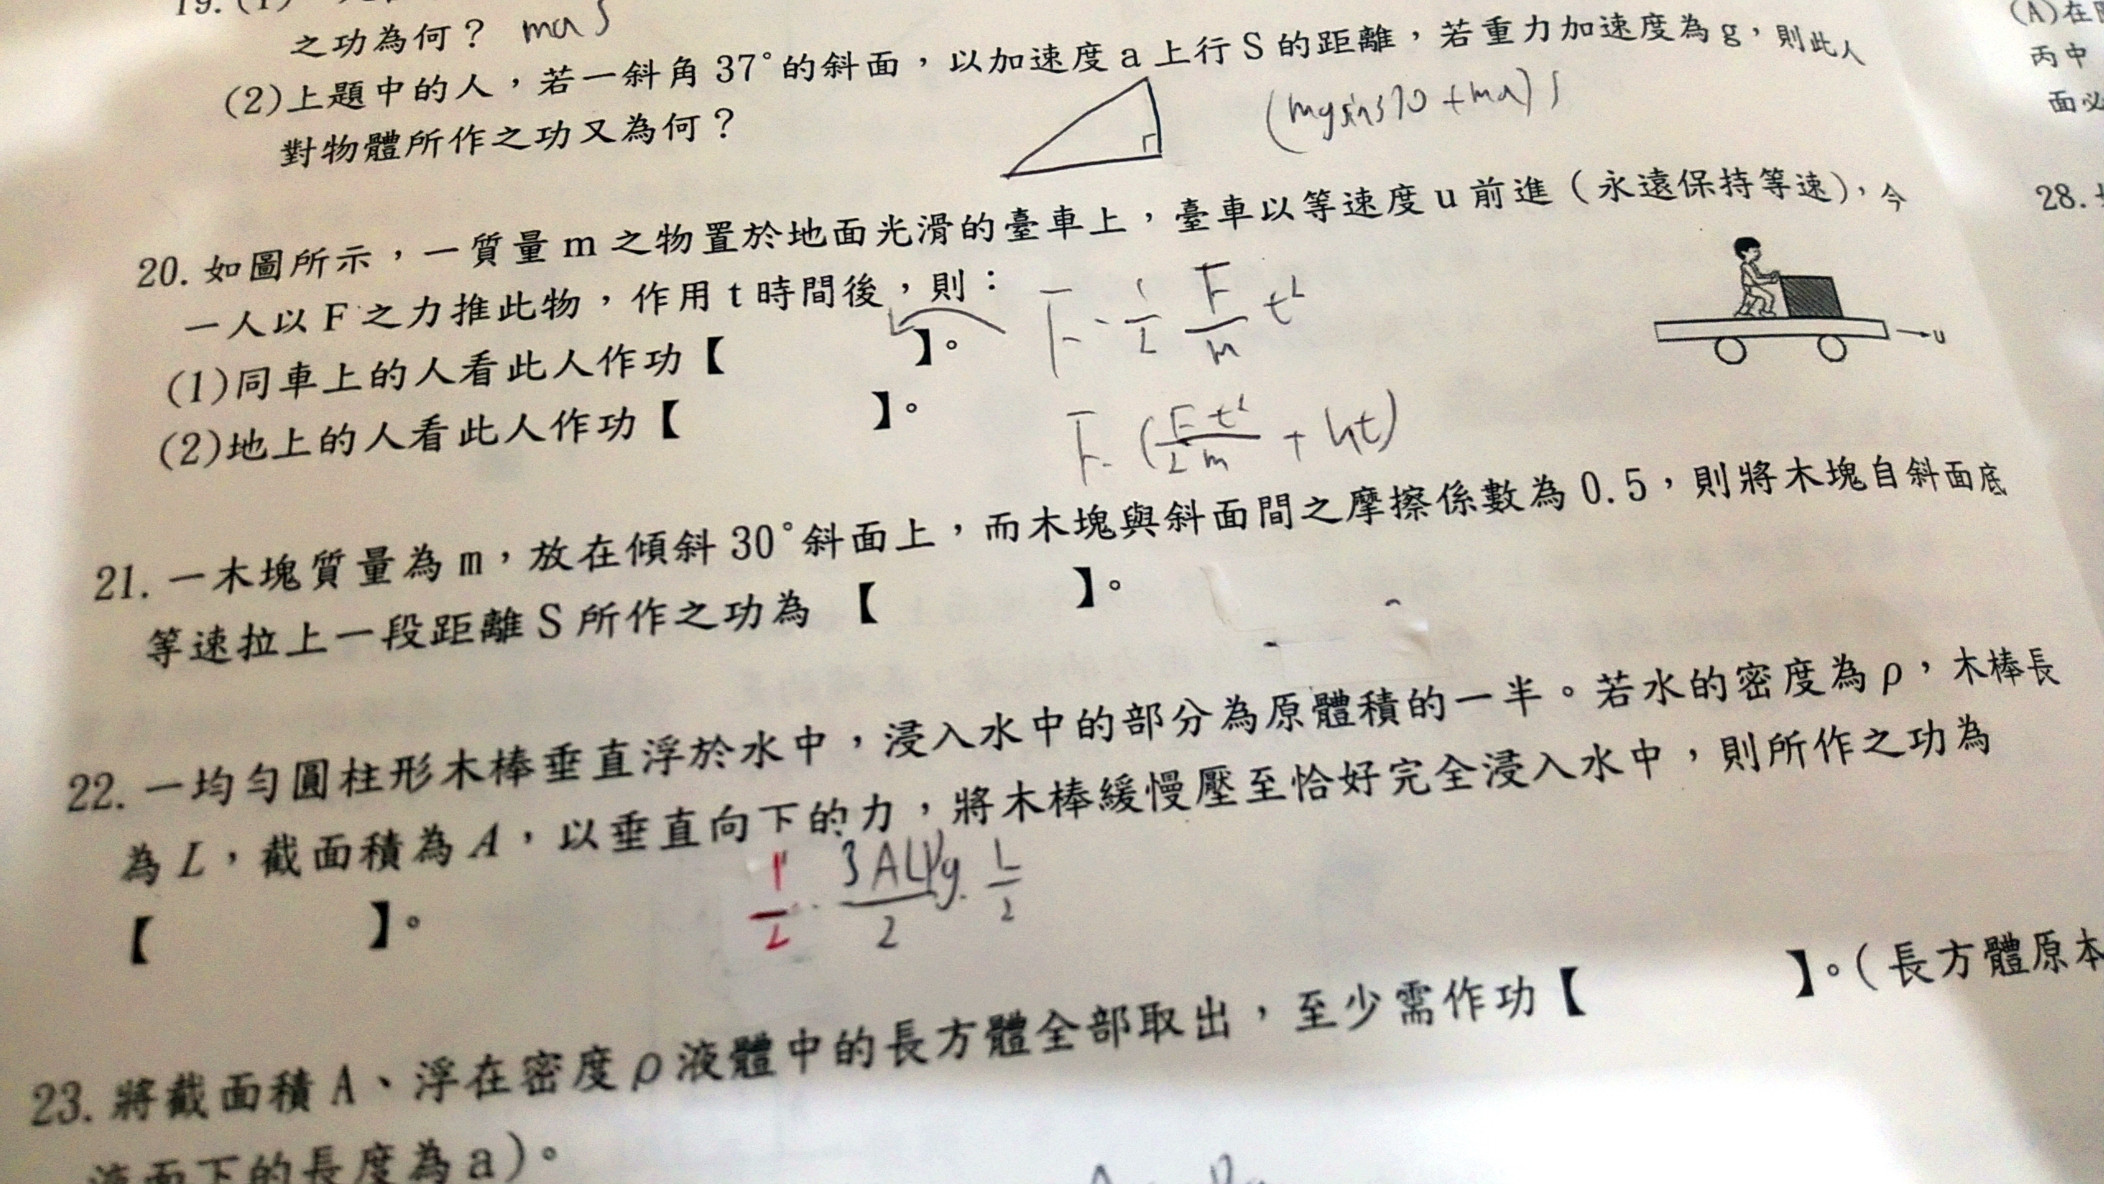 19.(1)
之功為何？ mas
(2)上題中的人，若一斜角37°的斜面，以加速度a上行S的距離，若重力加速度為g，則此人
對物體所作之功又為何？
(mgsin37° + ma)S
20. 如圖所示，一質量m之物置於地面光滑的臺車上，臺車以等速度u前進（永遠保持等速），今
一人以F之力推此物，作用t時間後，則：
(1)同車上的人看此人作功【 】。
F · 1/2 F/m t²
(2)地上的人看此人作功【 】。
F · (Ft²/2m + ut)
u
21. 一木塊質量為m，放在傾斜30°斜面上，而木塊與斜面間之摩擦係數為0.5，則將木塊自斜面底
等速拉上一段距離S所作之功為【 】。
22. 一均勻圓柱形木棒垂直浮於水中，浸入水中的部分為原體積的一半。若水的密度為ρ，木棒長
為L，截面積為A，以垂直向下的力，將木棒緩慢壓至恰好完全浸入水中，則所作之功為
【 】。
1/2 · 3ALρg/2 · L/2
23. 將截面積A、浮在密度ρ液體中的長方體全部取出，至少需作功【 】。(長方體原本
液面下的長度為a)。
(A)在
丙中
面必
28.